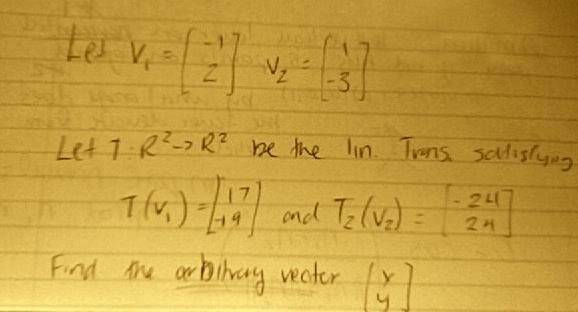 Let V₁ = [-1 2] V₂ = [1 -3]
Let T: R² -> R² be the lin. Trans. satisfying
T(V₁) = [17 -19] and T₂(V₂) = [-24 24]
Find the arbitrary vector [x y]